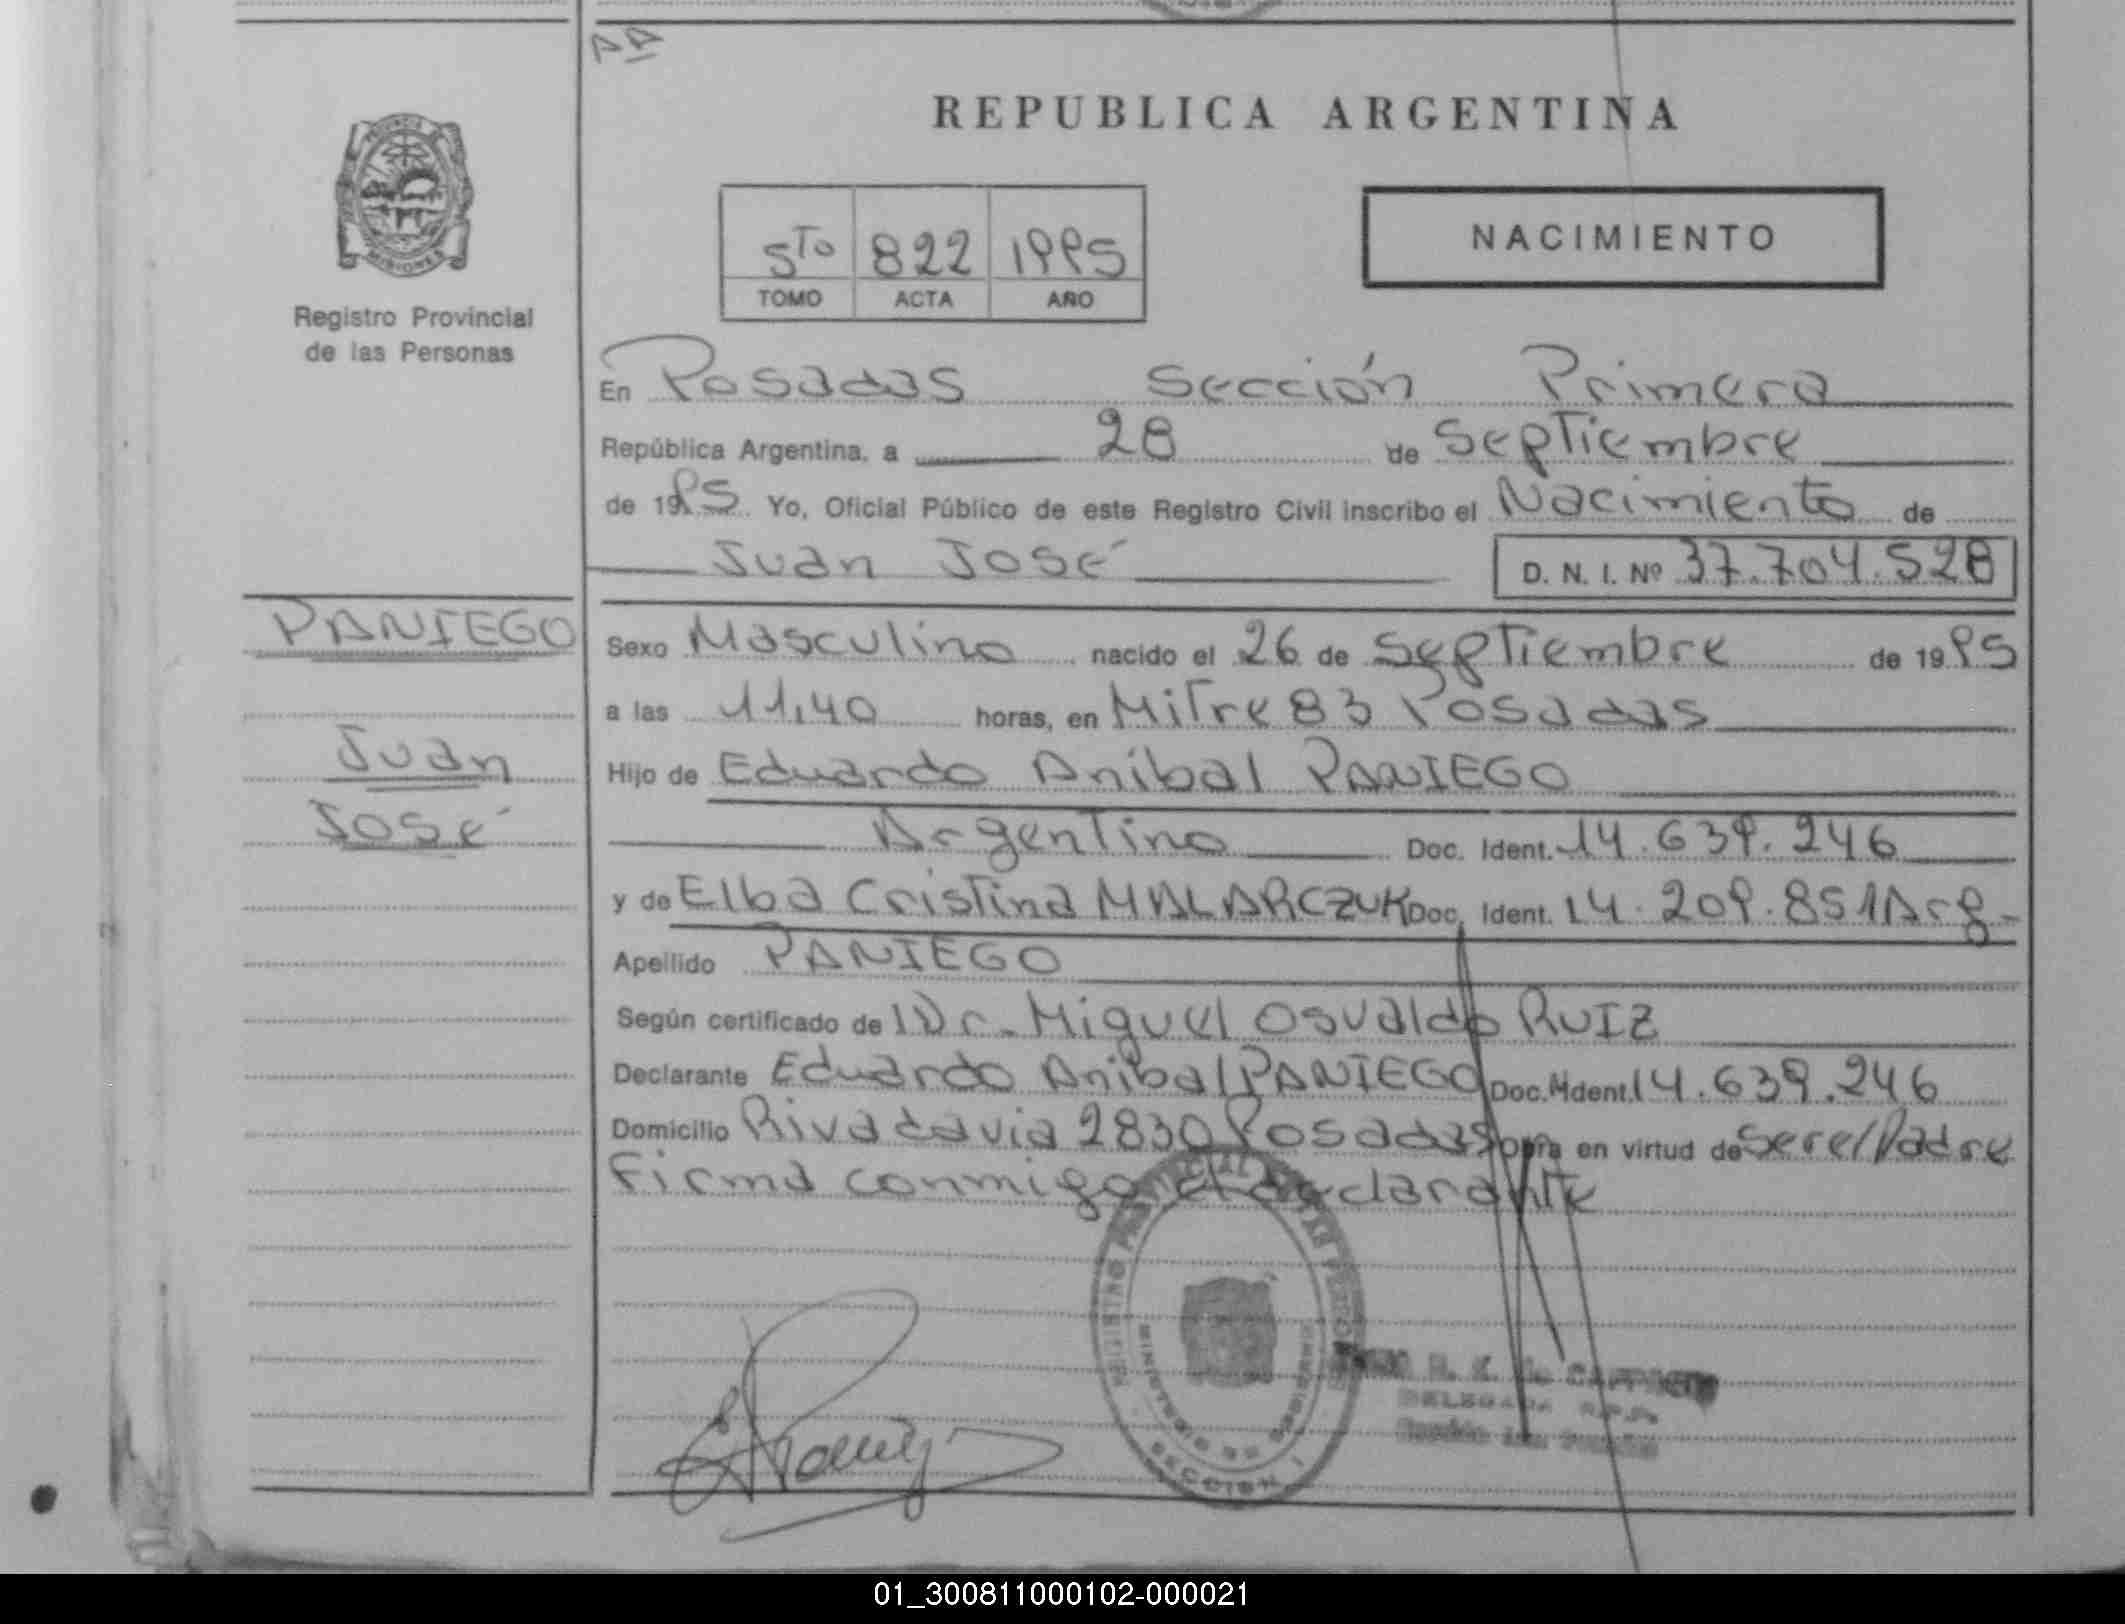 AA
REPUBLICA ARGENTINA
PROVINCIA DE
MISIONES
Registro Provincial
de las Personas
5To 822 1995
TOMO ACTA AÑO
NACIMIENTO
En Posadas Sección Primera
República Argentina, a 28 de Septiembre
de 1995 Yo, Oficial Público de este Registro Civil inscribo el Nacimiento de
Juan José D. N. I. Nº 37.704.528
PANIEGO
Juan
José
Sexo Masculino nacido el 26 de Septiembre de 1995
a las 11,40 horas, en Mitre 83 Posadas
Hijo de Eduardo Anibal PANIEGO
Argentino Doc. Ident. 14.639.246
y de Elba Cristina MALARCZUK Doc. Ident. 14.209.851 Arg-
Apellido PANIEGO
Según certificado de Dr. Miguel Osvaldo RUIZ
Declarante Eduardo Anibal PANIEGO Doc. Ident. 14.639.246
Domicilio Rivadavia 2830 Posadas obra en virtud de ser el Padre
Firma conmigo el declarante
REGISTRO PROVINCIAL DE LAS PERSONAS
MINISTERIO DE GOBIERNO
SECCION I
DELEGADA R.P.P.
01_300811000102-000021